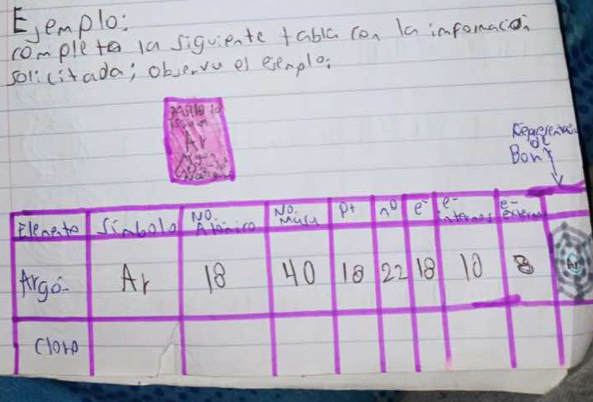 Ejemplo:
completa la siguiente tabla con la información
solicitada; observa el ejemplo:
Ar
Bor
Elemento Símbolo No. Atómico No. Masa p+ n° e- e- internos e- extern
Argó- Ar 18 40 18 22 18 10 8
Cloro